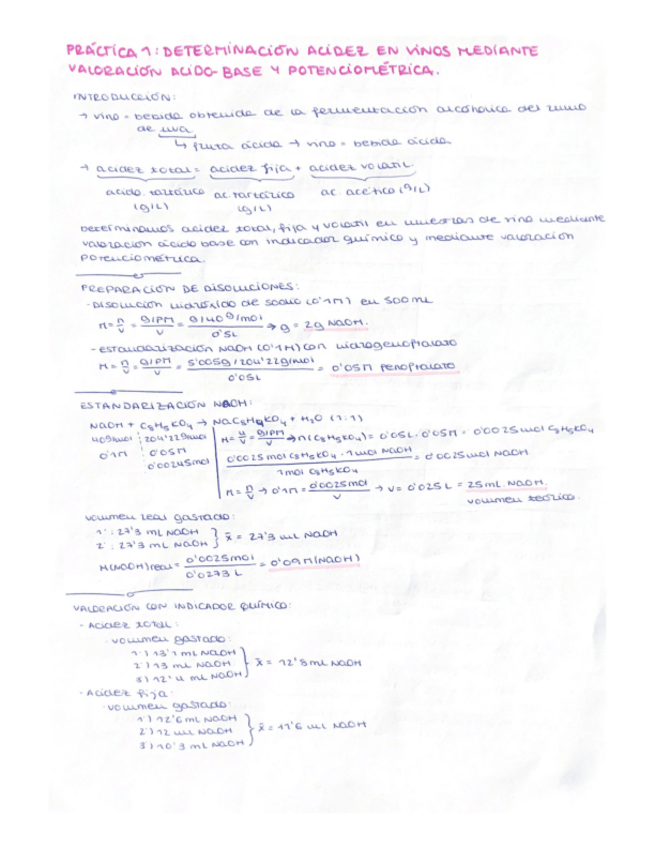 PRÁCTICA 1: DETERMINACIÓN ACIDEZ EN VINOS MEDIANTE
VALORACIÓN ACIDO-BASE Y POTENCIOMÉTRICA.
INTRODUCCIÓN:
→ vino = bebida obtenida de la fermentación alcohólica del zumo
de uva
↳ fruta ácida → vino = bebida ácida.
→ acidez total = acidez fija + acidez volatil.
acido tartárico ac. tartárico ac. acético (g/L)
(g/L) (g/L)
Determinamos acidez total, fija y volatil en muestras de vino mediante
valoración ácido base con indicador químico y mediante valoración
potenciométrica.
PREPARACIÓN DE DISOLUCIONES:
- Disolución hidróxido de sodio (0'1M) en 500 mL
M = n/V = g/PM/V = g/40 g/mol/0'5L → g = 2g NaOH.
- Estandarización NaOH (0'1M) con hidrogenoftalato
M = n/V = g/PM/V = 5'005g/204'22g/mol/0'05L = 0'05M
ESTANDARIZACIÓN NAOH:
NaOH + C8H5KO4 → NaC8H4KO4 + H2O (1:1)
40g/mol 204'22g/mol M = n/V = g/PM/V → n(C8H5KO4) = 0'05L · 0'05M = 0'0025mol C8H5KO4
0'1M 0'05M
0'00245mol 0'0025mol C8H5KO4 · 1mol NaOH/1mol C8H5KO4 = 0'0025mol NaOH
M = n/V → 0'1M = 0'0025mol/V → V = 0'025L = 25mL NaOH.
volumen teórico.
volumen real gastado:
1: 27'3 mL NaOH
2: 27'3 mL NaOH
x̄ = 27'3 mL NaOH
M(NaOH)real = 0'0025mol/0'0273 L = 0'09M (NaOH)
VALORACIÓN CON INDICADOR QUÍMICO:
- Acidez total:
· volumen gastado:
1) 13'1 mL NaOH
2) 13 mL NaOH
3) 12'4 mL NaOH
x̄ = 12'8 mL NaOH
- Acidez fija:
· volumen gastado:
1) 12'6 mL NaOH
2) 12 mL NaOH
3) 10'3 mL NaOH
x̄ = 11'6 mL NaOH